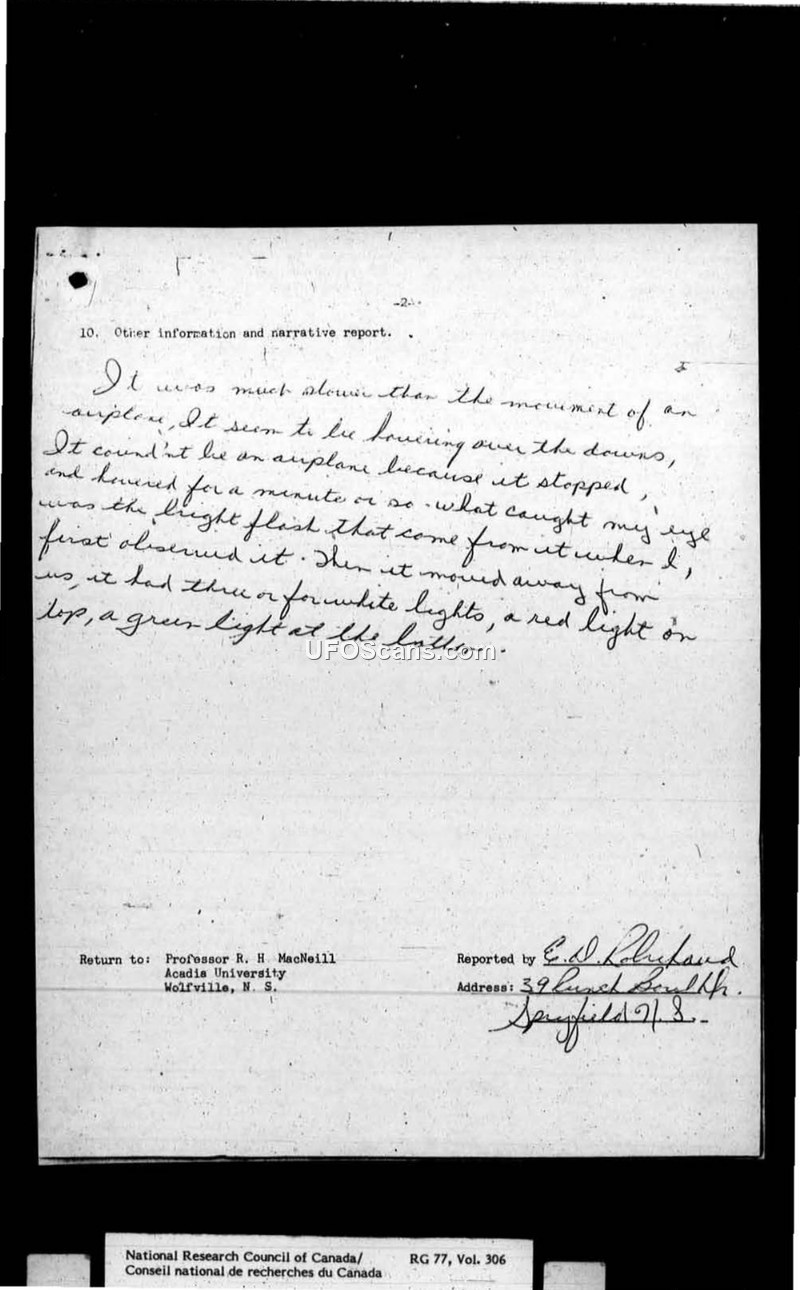 -2-
10. Other information and narrative report.
It was much slower than the movement of an
airplane, It seem to be hovering over the downs,
It cound'nt be an airplane because it stopped,
and hovered for a minute or so. what caught my eye
was the bright flash that came from it when I,
first observed it. Then it moved away from
us, it had three or for white lights, a red light on
top, a green light at the bottom.
UFOScans.com
Return to: Professor R. H MacNeill
Acadia University
Wolfville, N. S.
Reported by E. D. Robichaud
Address: 39 Punch Bowl Dr.
Spryfield N. S.
National Research Council of Canada/
Conseil national de recherches du Canada
RG 77, Vol. 306